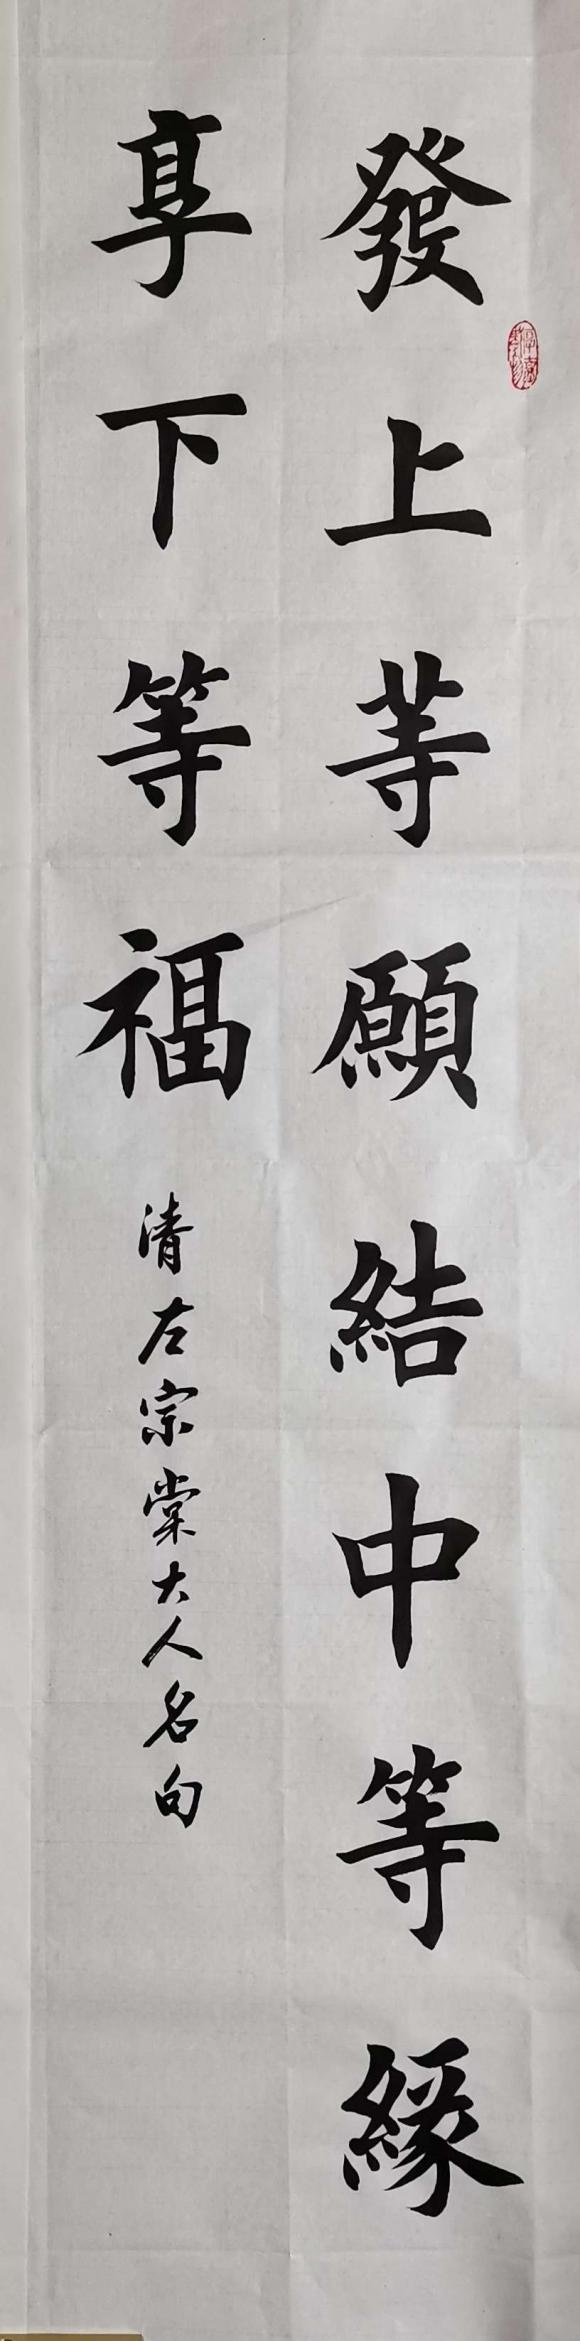 發上等願結中等緣
享下等福
清左宗棠大人名句